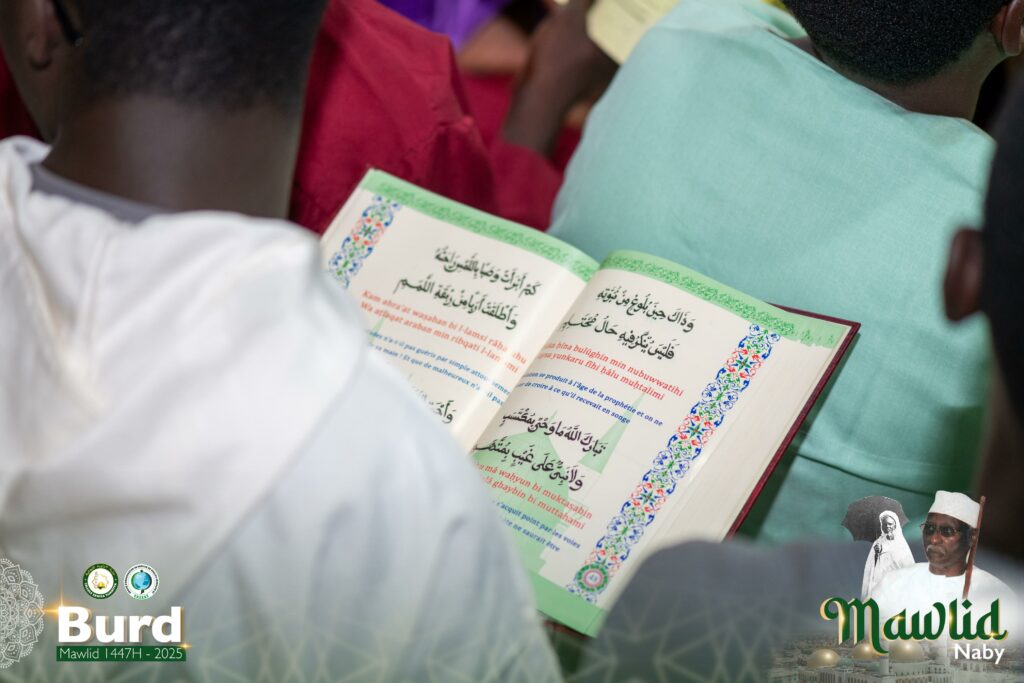 كَمْ أَبْرَأَتْ وَصِبًا بِاللَّمْسِ رَاحَتُهُ
وَأَطْلَقَتْ أَرِبًا مِنْ رِبْقَةِ اللَّمَمِ
Kam abra'at waṣaban bi l-lamsi rāḥatuhu
Wa aṭlaqat araban min ribqati l-lamami
n'a-t-il pas guéris par simple attouchement
sa main ! Et que de malheureux n'a
وَأَحْ
وَذَاكَ حِينَ بُلُوغٍ مِنْ نُبُوَّتِهِ
فَلَيْسَ يُنْكَرُ فِيهِ حَالُ مُحْتَلِمِ
ḥīna bulūghin min nubuwwatihi
yunkaru fīhi ḥālu muḥtalimi
se produit à l'âge de la prophétie et on ne
de croire à ce qu'il recevait en songe
تَبَارَكَ اللَّهُ مَا وَحْيٌ بِمُكْتَسَبٍ
وَلَا نَبِيٌّ عَلَى غَيْبٍ بِمُتَّهَمِ
mā waḥyun bi muktasabin
ghaybin bi muttahami
s'acquit point par les voies
te ne saurait être
Burd
Mawlid 1447H - 2025
Mawlid
Naby